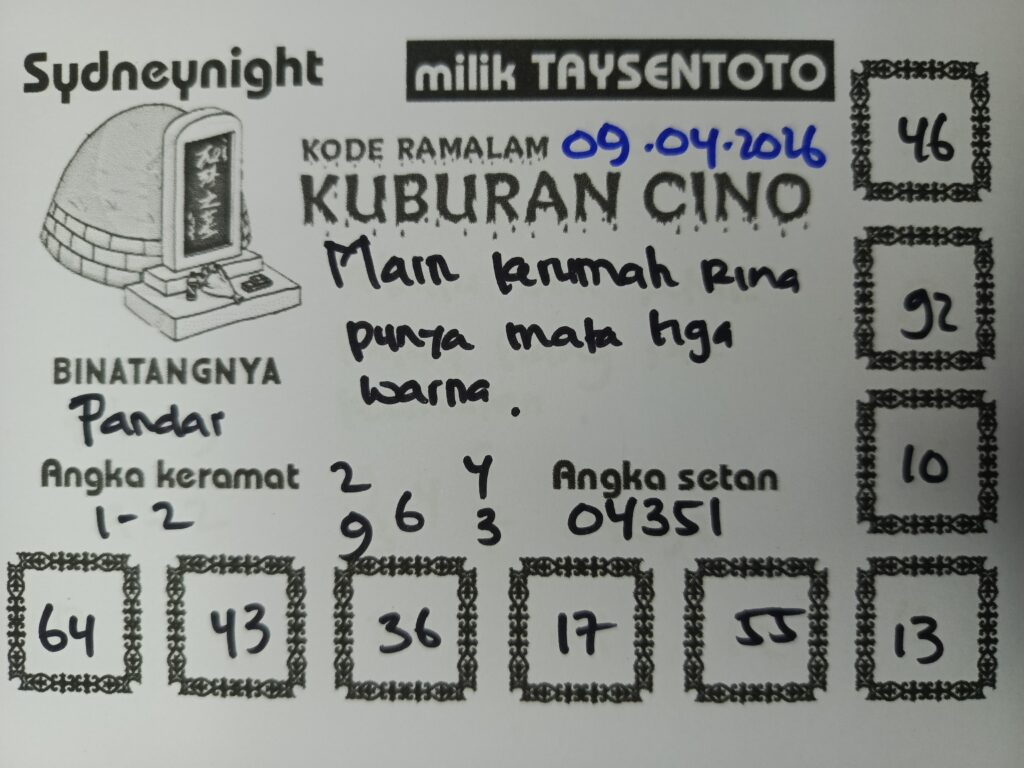 Sydneynight
milik TAYSENTOTO
KODE RAMALAM 09.04.2026
KUBURAN CINO
Main kerumah Rina
punya mata tiga
warna.
BINATANGNYA
Pandar
Angka keramat
1-2
2 4
6
9 3
Angka setan
04351
46
92
10
64 43 36 17 55 13